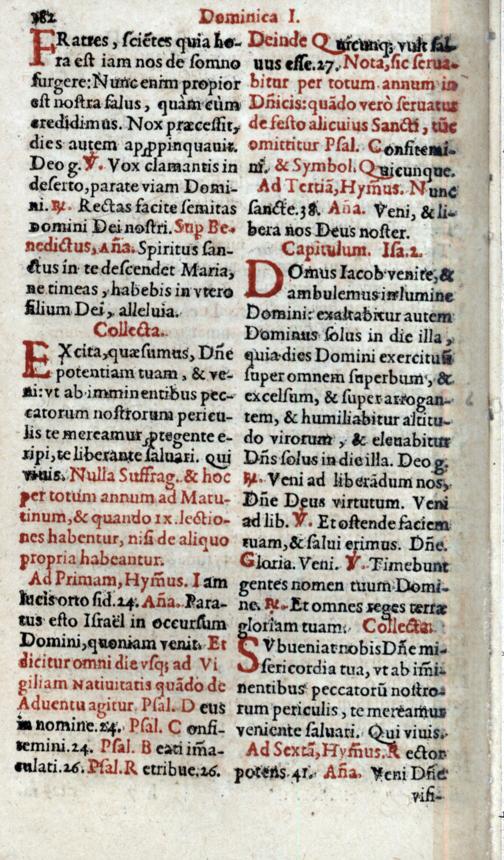 382 Dominica I.
FRatres, sciẽtes quia ho-
ra est iam nos de somno
surgere: Nunc enim propior
est nostra salus, quàm cùm
credidimus. Nox præcessit,
dies autem apꝓpinquauit.
Deo g. ℣. Vox clamantis in
deserto, parate viam Domi-
ni. ℟. Rectas facite semitas
Domini Dei nostri. Sup Be-
nedictus, Aña. Spiritus san-
ctus in te descendet Maria,
ne timeas, habebis in vtero
filium Dei, alleluia.
Collecta.
EXcita, quæsumus, Dñe
potentiam tuam, & ve-
ni: vt ab imminentibus pec-
catorum nostrorum pericu-
lis te mereamur ꝓtegente e-
ripi, te liberante saluari. qui
viuis. Nulla Suffrag. & hoc
per totum annum ad Matu-
tinum, & quando ix. lectio-
nes habentur, nisi de aliquo
propria habeantur.
Ad Primam, Hym̃us. Iam
lucis orto sid. 24. Aña. Para-
tus esto Israël in occursum
Domini, quoniam venit. Et
dicitur omni die vsq; ad Vi
giliam Natiuitatis quãdo de
Aduentu agitur. Psal. Deus
in nomine. 24. Psal. Confi-
temini. 24. Psal. Beati ima-
culati. 26. Psal. Retribue. 26.
Deinde Quicunq; vult sal-
uus esse. 27. Nota, sic serua-
bitur per totum annum in
Dñicis: quãdo verò seruatur
de festo alicuius Sancti, tũc
omittitur Psal. Confitemi-
ni, & Symbol. Quicunque.
Ad Tertiã, Hym̃us. Nunc
sancte. 38. Aña. Veni, & li-
bera nos Deus noster.
Capitulum. Isa. 2.
DOmus Iacob venite, &
ambulemus in lumine
Domini: exaltabitur autem
Dominus solus in die illa,
quia dies Domini exercituũ
super omnem superbum, &
excelsum, & super arrogan-
tem, & humiliabitur altitu-
do virorum, & eleuabitur
Dñs solus in die illa. Deo g.
℟. Veni ad liberãdum nos,
Dñe Deus virtutum. Veni
ad lib. ℣. Et ostende faciem
tuam, & salui erimus. Dñe.
Gloria. Veni. ℣. Timebunt
gentes nomen tuum Domi-
ne. ℟. Et omnes reges terræ
gloriam tuam. Collecta.
SVbueniat nobis Dñe mi-
sericordia tua, vt ab imĩ-
nentibus peccatorũ nostro-
rum periculis, te mereamur
veniente saluari. Qui viuis.
Ad Sextã, Hym̃us. Rector
potens. 41. Aña. Veni Dñe
visi-